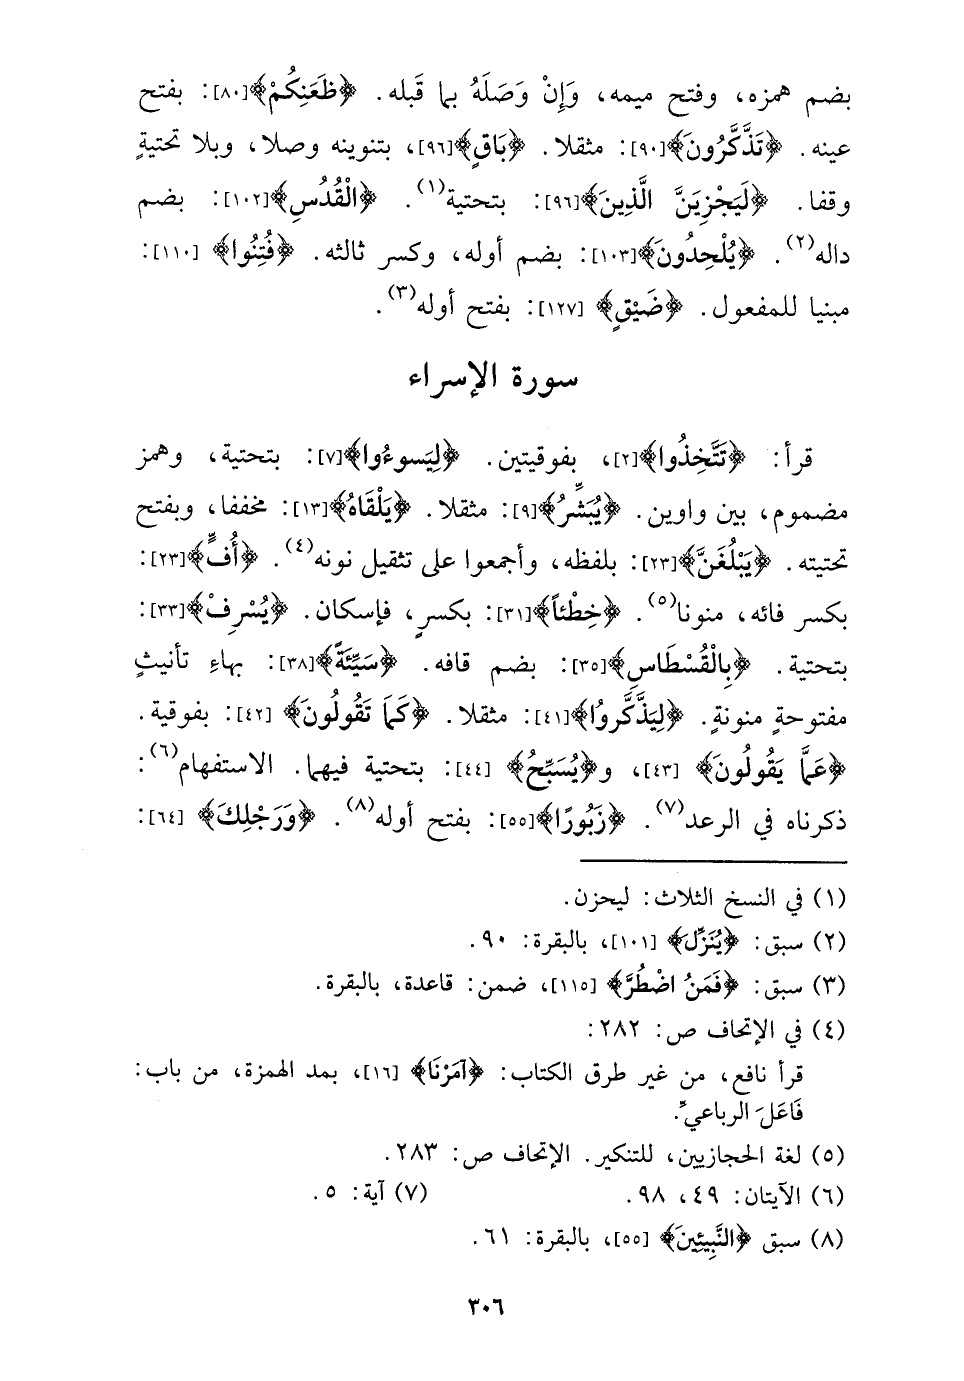 بضم همزه، وفتح ميمه، وَإِنْ وَصَلَهُ بما قَبله. ﴿ظَعَنِكُمْ﴾[٨٠]: بفتح
عينه. ﴿تَذَّكَّرُونَ﴾[٩٠]: مثقلا. ﴿بَاقٍ﴾[٩٦]، بتنوينه وصلا، وبلا تحتيةٍ
وقفا. ﴿لَيَجْزِيَنَّ الَّذِينَ﴾[٩٦]: بتحتية(١). ﴿الْقُدُسِ﴾[١٠٢]: بضم
داله(٢). ﴿يُلْحِدُونَ﴾[١٠٣]: بضم أوله، وكسر ثالثه. ﴿فُتِنُوا﴾ [١١٠]:
مبنيا للمفعول. ﴿ضَيْقٍ﴾ [١٢٧]: بفتح أوله(٣).
سورة الإسراء
قرأ: ﴿تَتَّخِذُوا﴾[٢]، بفوقيتين. ﴿لِيَسوءُوا﴾[٧]: بتحتية، وهمز
مضموم، بين واوين. ﴿يُبَشِّرُ﴾[٩]: مثقلا. ﴿يَلْقَاهُ﴾[١٣]: مخففا، وبفتح
تحتيته. ﴿يَبْلُغَنَّ﴾[٢٣]: بلفظه، وأجمعوا على تثقيل نونه(٤). ﴿أُفٍّ﴾[٢٣]:
بكسر فائه، منونا(٥). ﴿خِطْئاً﴾[٣١]: بكسرٍ، فإسكان. ﴿يُسْرِفْ﴾[٣٣]:
بتحتية. ﴿بِالْقُسْطَاسِ﴾[٣٥]: بضم قافه. ﴿سَيِّئَةً﴾[٣٨]: بهاءِ تأنيثٍ
مفتوحةٍ منونةٍ. ﴿لِيَذَّكَّرُوا﴾[٤١]: مثقلا. ﴿كَمَا تَقُولُونَ﴾ [٤٢]: بفوقية.
﴿عَمَّا يَقُولُونَ﴾ [٤٣]، و﴿يُسَبِّحُ﴾ [٤٤]: بتحتية فيهما. الاستفهام(٦):
ذكرناه في الرعد(٧). ﴿زَبُورًا﴾[٥٥]: بفتح أوله(٨). ﴿وَرَجْلِكَ﴾ [٦٤]:
(١) في النسخ الثلاث: ليحزن.
(٢) سبق: ﴿يُنَزِّلَ﴾ [١٠١]، بالبقرة: ٩٠.
(٣) سبق: ﴿فَمَنُ اضْطُرَّ﴾ [١١٥]، ضمن: قاعدة، بالبقرة.
(٤) في الإتحاف ص: ٢٨٢:
قرأ نافع، من غير طرق الكتاب: ﴿آمَرْنَا﴾ [١٦]، بمد الهمزة، من باب:
فَاعَلَ الرباعيِّ.
(٥) لغة الحجازيين، للتنكير. الإتحاف ص: ٢٨٣.
(٦) الآيتان: ٤٩، ٩٨. (٧) آية: ٥.
(٨) سبق ﴿النَّبِيئِينَ﴾ [٥٥]، بالبقرة: ٦١.
٣٠٦